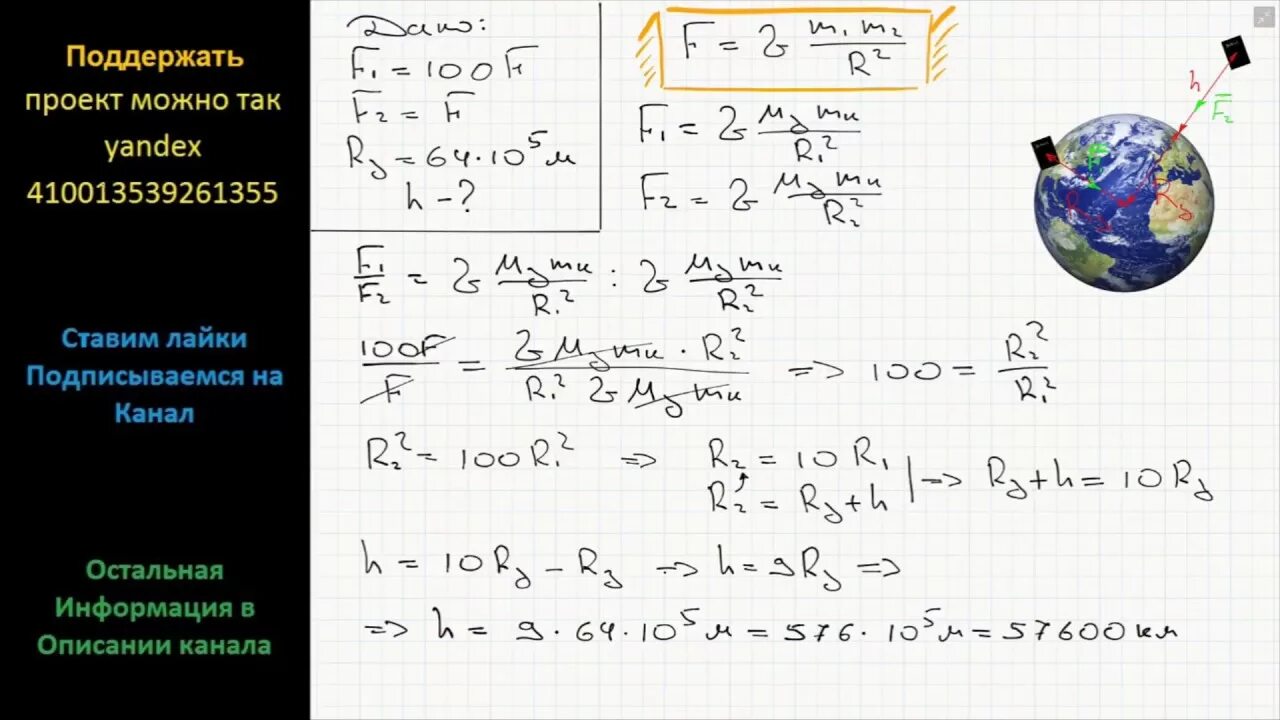 Поддержать
проект можно так
yandex
410013539261355
Ставим лайки
Подписываемся на
Канал
Остальная
Информация в
Описании канала
Дано:
F₁ = 100 F
F₂ = F
Rз = 64·10⁵ м
h - ?
F = G m₁ m₂ / R²
F₁ = G Mз mк / R₁²
F₂ = G Mз mк / R₂²
F₁/F₂ = G Mз mк / R₁² : G Mз mк / R₂²
100F / F = G Mз mк · R₂² / R₁² G Mз mк => 100 = R₂² / R₁²
R₂² = 100 R₁² => R₂ = 10 R₁
R₂ = Rз + h | => Rз + h = 10 Rз
h = 10 Rз - Rз => h = 9 Rз =>
=> h = 9 · 64 · 10⁵ м = 576 · 10⁵ м = 57600 км
h
F₂
F
Rз
Rз